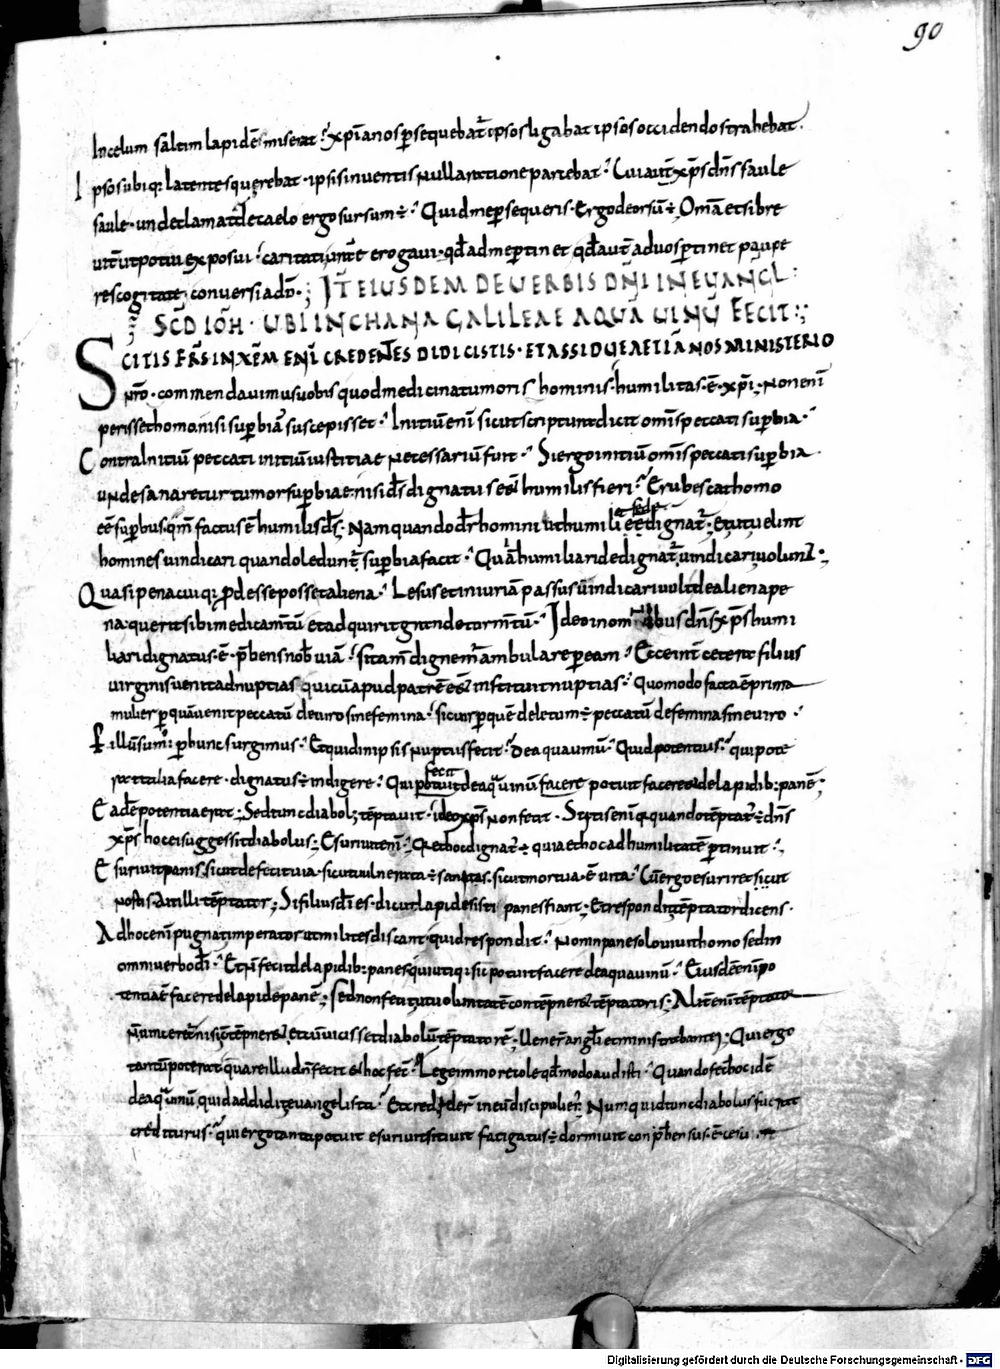 90
In celum saltim lapidē miserat · xpīanos ꝑsequebat̄ ipsos ligabat ipsos occidendos trahebat.
Ipsos ubiq; latentes querebat · ipsis inuentis nulla ratione parcebat · Cui aūt xp̄s dn̄s saule
saule · unde clamat de caelo ergo sursum ÷ · Quid me ꝑsequeris · Ergo deorsū ÷ Omīa etsi bre
uit ut potui exposui · caritati ūrē erogaui · qd̄ ad me ꝑtinet qd̄ aūt ad uos ꝑtinet pauꝑe
res cogitate, conuersi ad dn̄m. ; IT̄ EIUSDEM DE UERBIS DN̄I IN EUANGL :
SCD̄ IOH̄ · UBI IN CHANA GALILEAE AQUĀ UINŪ FECIT :
SCITIS FR̄S IN XP̄M ENĪ CREDENTES DIDICISTIS · ET ASSIDUE ETIĀ NOS MINISTERIO
nr̄o · commendauimus uobis quod medicina tumoris hominis · humilitas · ē · xp̄i; Non enī
perisset homo nisi superbiā suscepisset · Initiū enī sicut scriptura dicit omīs peccati suꝑbia ·
Contra Initiū peccati initiū iustitiae necessariū fuit · Si ergo initiū omīs peccati suꝑbia
unde sanaretur tumor suꝑbiae nisi d̄s dignatus eēt humilis fieri · Erubescat homo
eē suꝑbus. qm̄ factus ē humilis d̄s; Nam quando dr̄ homini ut humiliet se dedignat̄; Et ut uelint
homines uindicari quando ledunt̄ suꝑbia facit · Quīa humiliari dedignat̄ uindicari uolunt:
Quasi pena cuiq; ꝓdesse posset aliena · Lesus et iniuriā passus uindicari uult de aliena pe
na · querit sibi medicam̄tū et adquirit grande torm̄tū · Ideo in omnibus dn̄s xp̄s humi
liari dignatus · ē · p̄bens nob̄ uiā · si tam̄ dignem̄ ambulare ꝑ eam · Ecce int̄ cetera filius
uirginis uenit ad nuptias qui cū apud patrē eēt instituit nuptias · Quomodo facta ē prima
mulier ꝑ quā uenit peccatū de uiro sine femina · sic uir ꝑ quē deletum ÷ peccatū de femina sine uiro ·
Ꝑ illū sumꝰ · ꝑ hunc surgimus · Et quid in ipsis nuptiis fecit · De aqua uinū · Quid potentius · qui pote
rat talia facere · dignatus ÷ indigere · Qui fecit de aqua uinū facere potuit facere & de lapidib; panē;
Eadē potentia erat; Sed tunc diabol; tēptauit · ideo xp̄s non fecit · Scitis enī q̄ quando tēptat̄ ÷ dn̄s
xp̄s hoc ei suggessit diabolus; Esuriuit enī · Q; et hoc dignat̄ ÷ quia et hoc ad humilitatē ꝑtinuit ·,
Esuriuit panis. sicut defecit uia · sicut uulnerata ÷ sanitas. sicut mortua · ē uita · Cū ergo esuriret sicut
nostis dixit illi tēptator; Si filius d̄i es · dic ut lapides isti panes fiant; Et respondit tēptatori dicens ·
Ad hoc enī pugnat imperator ut milites discant · quid respondit · Non in pane solo uiuit homo sed in
omni uerbo d̄i · Et n̄ fecit de lapidib; panes qui utiq; sic potuit facere de aqua uinū · Eiusdē enī po
tentiae facere de lapide panē; sed non fecit ut uoluntatē contēpneret tēptatoris; Aliter enī tēptator
nūm ceret̄ nisi cōtēpneret̄; Et cū uicisset diabolū tēptatorē; Uener̄ angl̄i et ministrabant ei · Qui ergo
tantū poterat quare illud n̄ fecit & hoc fec̄ · Lege immo recole qd̄ modo audisti · Quando fec̄ hoc id ē
de aqua uinū quid addidit euangelista · Et credider̄ in eū discipuli eiꝰ. Numquid tunc diabolus fuerat
crediturus · qui ergo tanta potuit esuriuit sitiuit fatigatus ÷ dormiuit conp̄hensus · ē cesus
Digitalisierung gefördert durch die Deutsche Forschungsgemeinschaft - DFG